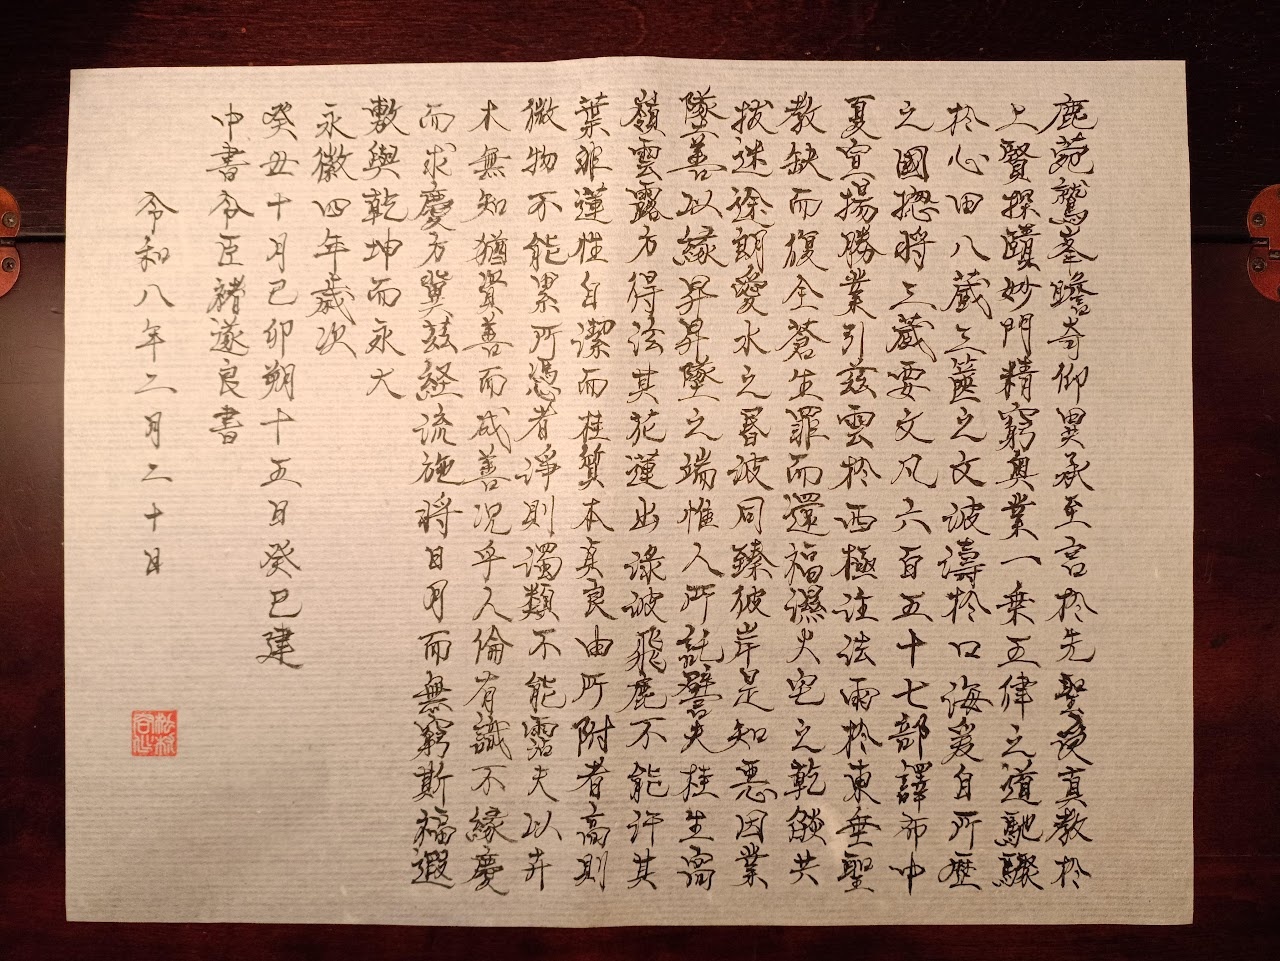 鹿菀鷲峯瞻奇仰異承至言扵先聖受真教扵
上賢探賾妙門精窮奧業一乗五律之道馳驟
扵心田八蔵三篋之文波濤扵口海爰自所歴
之國揔将三蔵要文凡六百五十七部譯布中
夏宣揚勝業引兹雲扵西極注法雨扵東垂聖
教缺而復全蒼生罪而還福濕火宅之乾燄共
拔迷途朗愛水之昬波同臻彼岸是知悪因業
墜善以縁昇昇墜之端惟人所託譬夫桂生高
嶺雲露方得法其花蓮出淥波飛鹿不能汙其
葉非蓮性自潔而桂質本真良由所附者高則
微物不能累所憑者淨則濁類不能霑夫以卉
木無知猶資善而成善況乎人倫有識不縁慶
而求慶方冀兹経流施将日月而無窮斯福遐
敷與乾坤而永大
永徽四年歳次
癸丑十月己卯朔十五日癸巳建
中書令臣褚遂良書
令和八年二月二十日